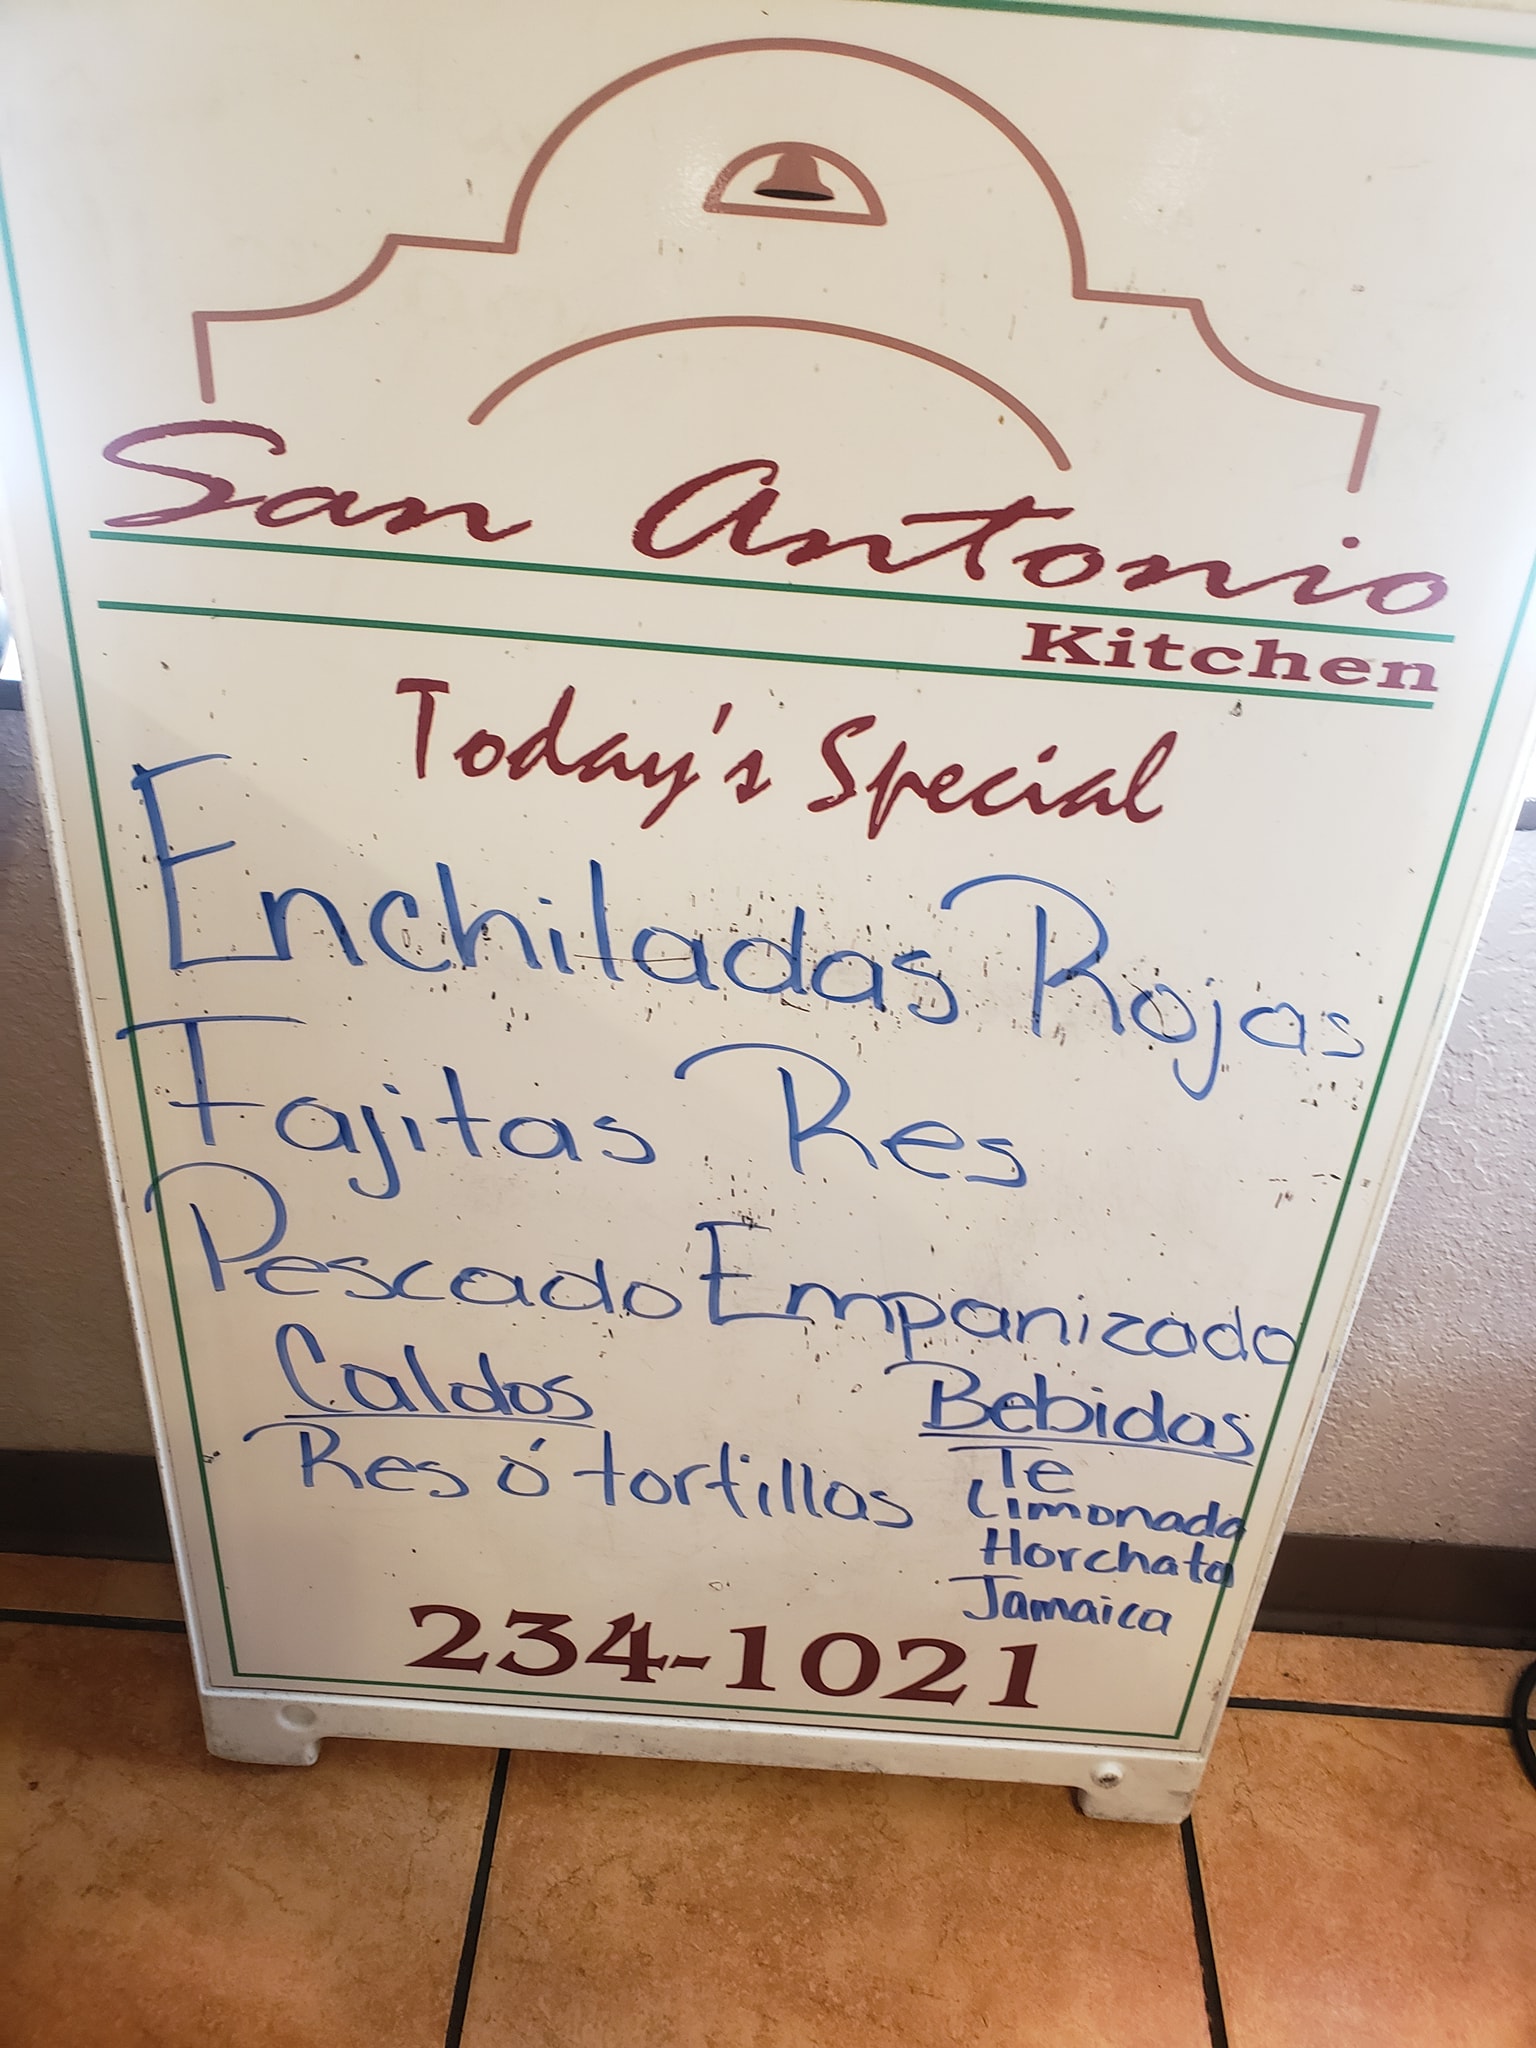 San Antonio
Kitchen
Today's Special
Enchiladas Rojas
Fajitas Res
Pescado Empanizado
Caldos
Res ó tortillas
Bebidas
Te
Limonada
Horchata
Jamaica
234-1021